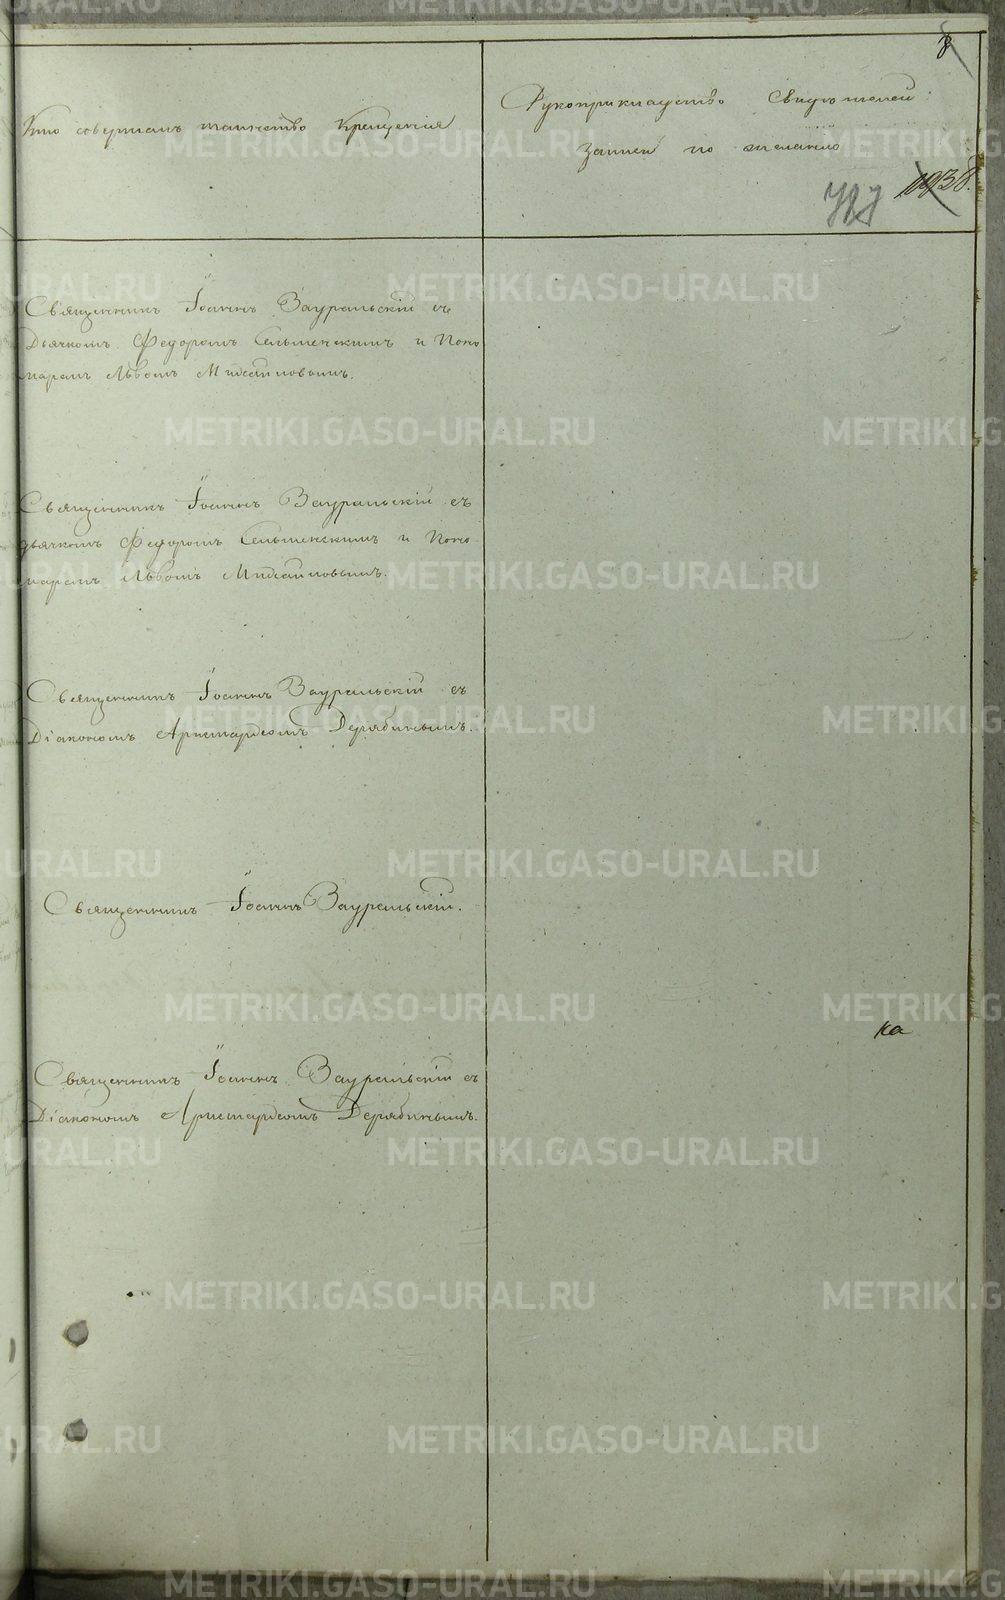 8
Кто совершалъ таинство Крещенія
Рукоприкладство свидѣтелей
записи по желанію
1938.
Священникъ Іоаннъ Зауральскій съ
Дьячкомъ Федоромъ Сельменскимъ и Поно
маремъ Львомъ Михайловымъ.
Священникъ Іоаннъ Зауральскій съ
дьячкомъ Федоромъ Сельменскимъ и Поно
маремъ Львомъ Михайловымъ.
Священникъ Іоаннъ Зауральскій съ
Діакономъ Аристархомъ Дерябинымъ.
Священникъ Іоаннъ Зауральскій.
ка
Священникъ Іоаннъ Зауральскій съ
Діакономъ Аристархомъ Дерябинымъ.
METRIKI.GASO-URAL.RU